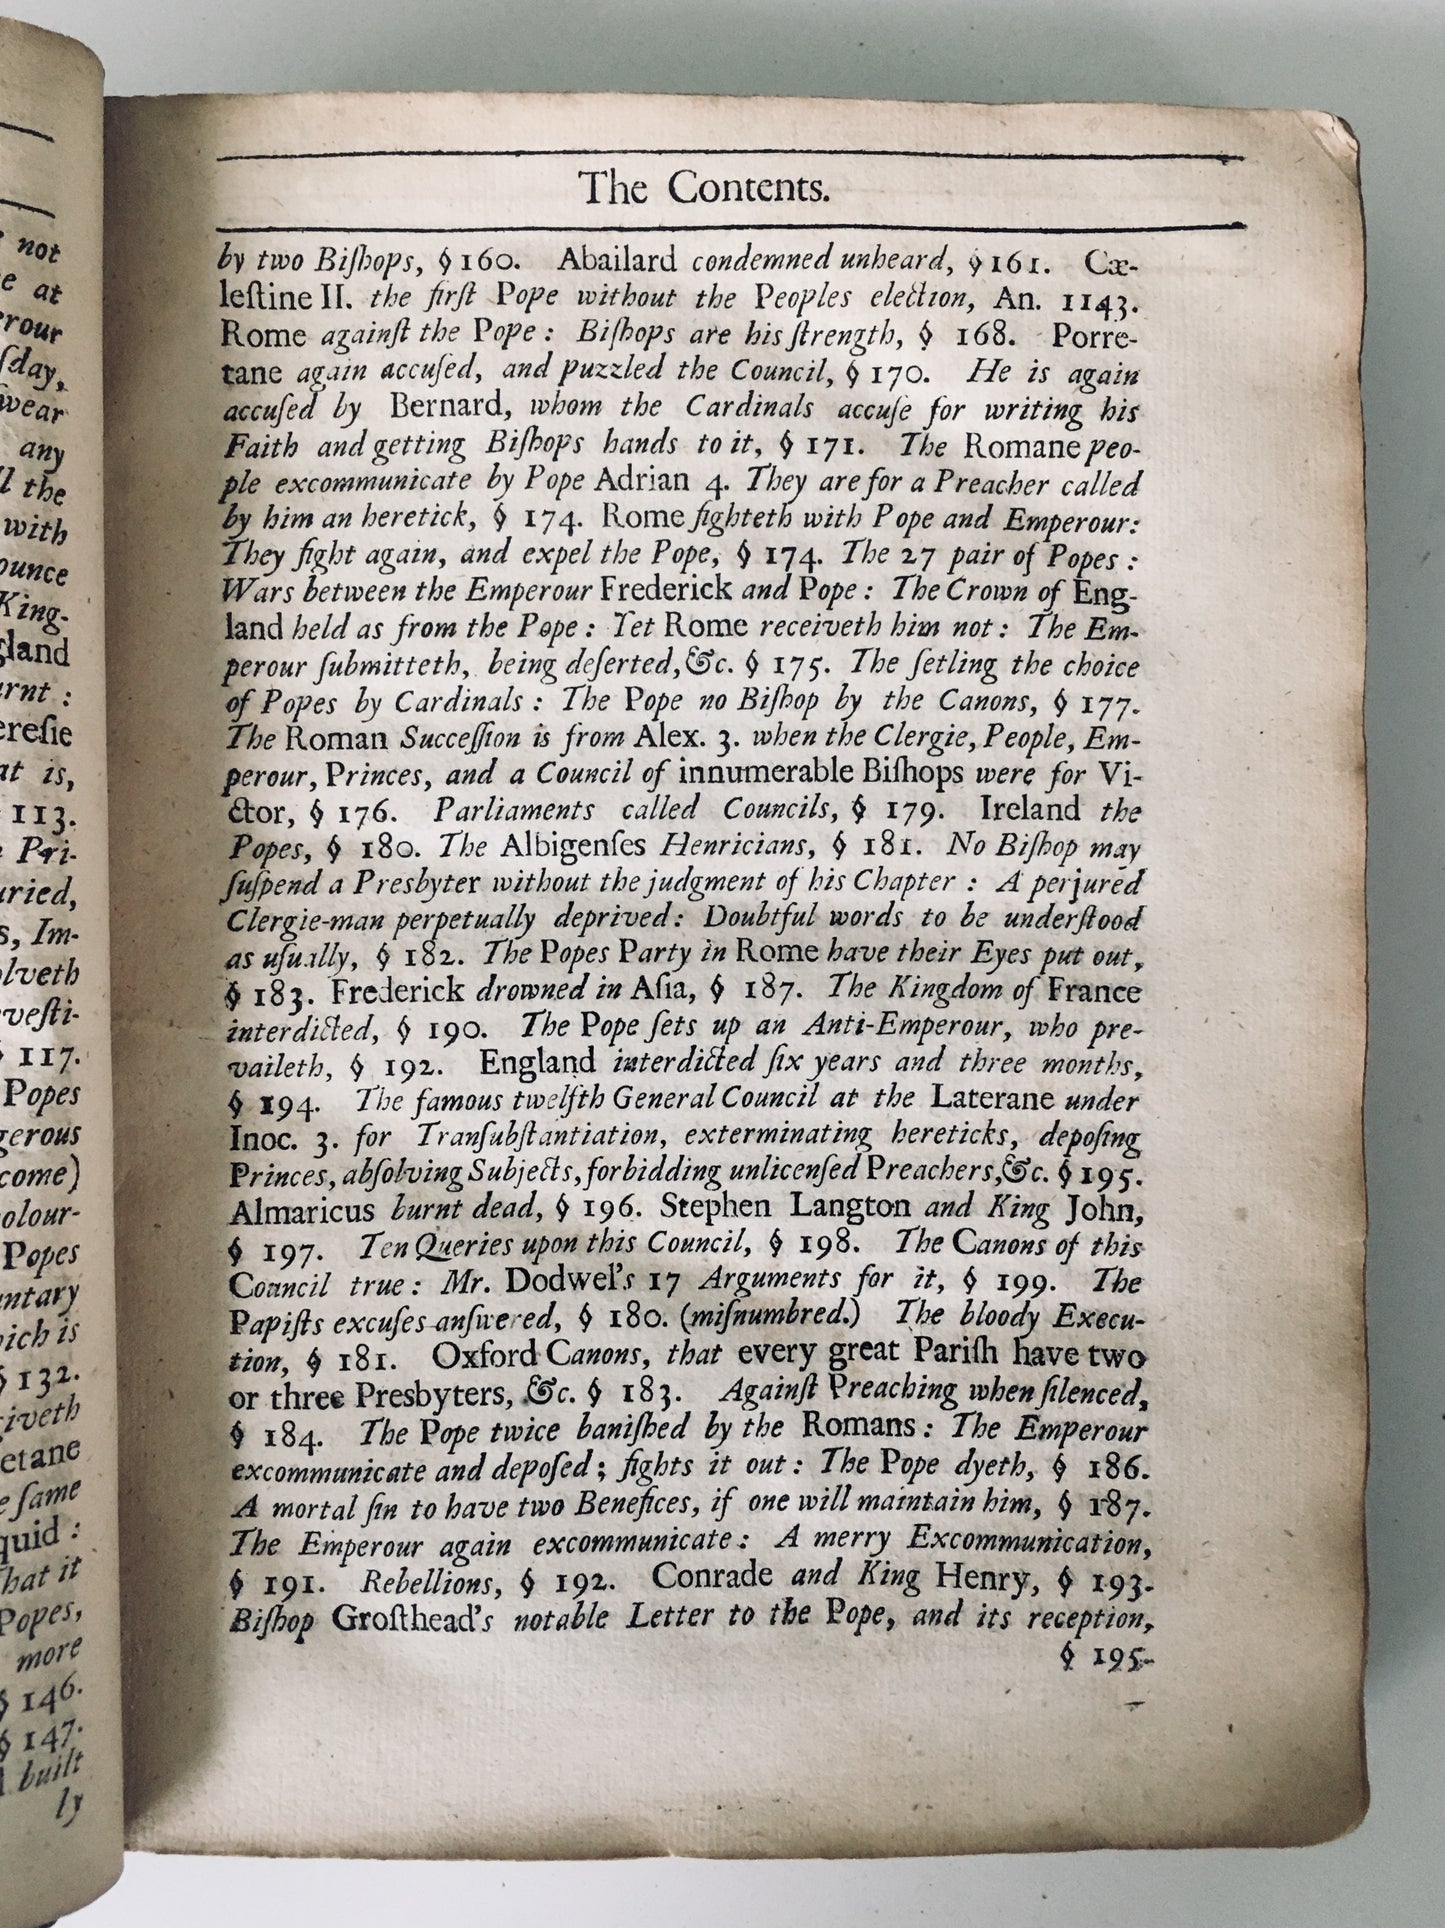 not
e at
erour
ſday,
wear
any
ll the
with
ounce
King-
gland
urnt :
ereſie
at is,
113.
Pri-
uried,
s, Im-
olveth
veſti-
§ 117.
Popes
gerous
come)
olour-
Popes
ntary
hich is
§ 132.
ceiveth
etane
e ſame
quid :
That it
Popes,
more
§ 146.
§ 147.
built
ly
The Contents.
by two Biſhops, § 160. Abailard condemned unheard, § 161. Cæ-
leſtine II. the firſt Pope without the Peoples election, An. 1143.
Rome againſt the Pope : Biſhops are his ſtrength, § 168. Porre-
tane again accuſed, and puzzled the Council, § 170. He is again
accuſed by Bernard, whom the Cardinals accuſe for writing his
Faith and getting Biſhops hands to it, § 171. The Romane peo-
ple excommunicate by Pope Adrian 4. They are for a Preacher called
by him an heretick, § 174. Rome fighteth with Pope and Emperour:
They fight again, and expel the Pope, § 174. The 27 pair of Popes :
Wars between the Emperour Frederick and Pope : The Crown of Eng-
land held as from the Pope : Yet Rome receiveth him not : The Em-
perour ſubmitteth, being deſerted, &c. § 175. The ſetling the choice
of Popes by Cardinals : The Pope no Biſhop by the Canons, § 177.
The Roman Succeſſion is from Alex. 3. when the Clergie, People, Em-
perour, Princes, and a Council of innumerable Biſhops were for Vi-
ctor, § 176. Parliaments called Councils, § 179. Ireland the
Popes, § 180. The Albigenſes Henricians, § 181. No Biſhop may
ſuſpend a Presbyter without the judgment of his Chapter : A perjured
Clergie-man perpetually deprived : Doubtful words to be underſtood
as uſually, § 182. The Popes Party in Rome have their Eyes put out,
§ 183. Frederick drowned in Aſia, § 187. The Kingdom of France
interdicted, § 190. The Pope ſets up an Anti-Emperour, who pre-
vaileth, § 192. England interdicted ſix years and three months,
§ 194. The famous twelfth General Council at the Laterane under
Inoc. 3. for Tranſubſtantiation, exterminating hereticks, depoſing
Princes, abſolving Subjects, forbidding unlicenſed Preachers, &c. § 195.
Almaricus burnt dead, § 196. Stephen Langton and King John,
§ 197. Ten Queries upon this Council, § 198. The Canons of this
Council true : Mr. Dodwel's 17 Arguments for it, § 199. The
Papiſts excuſes anſwered, § 180. (miſnumbred.) The bloody Execu-
tion, § 181. Oxford Canons, that every great Pariſh have two
or three Presbyters, &c. § 183. Againſt Preaching when ſilenced,
§ 184. The Pope twice baniſhed by the Romans : The Emperour
excommunicate and depoſed ; fights it out : The Pope dyeth, § 186.
A mortal ſin to have two Benefices, if one will maintain him, § 187.
The Emperour again excommunicate : A merry Excommunication,
§ 191. Rebellions, § 192. Conrade and King Henry, § 193.
Biſhop Groſthead's notable Letter to the Pope, and its reception,
§ 195.